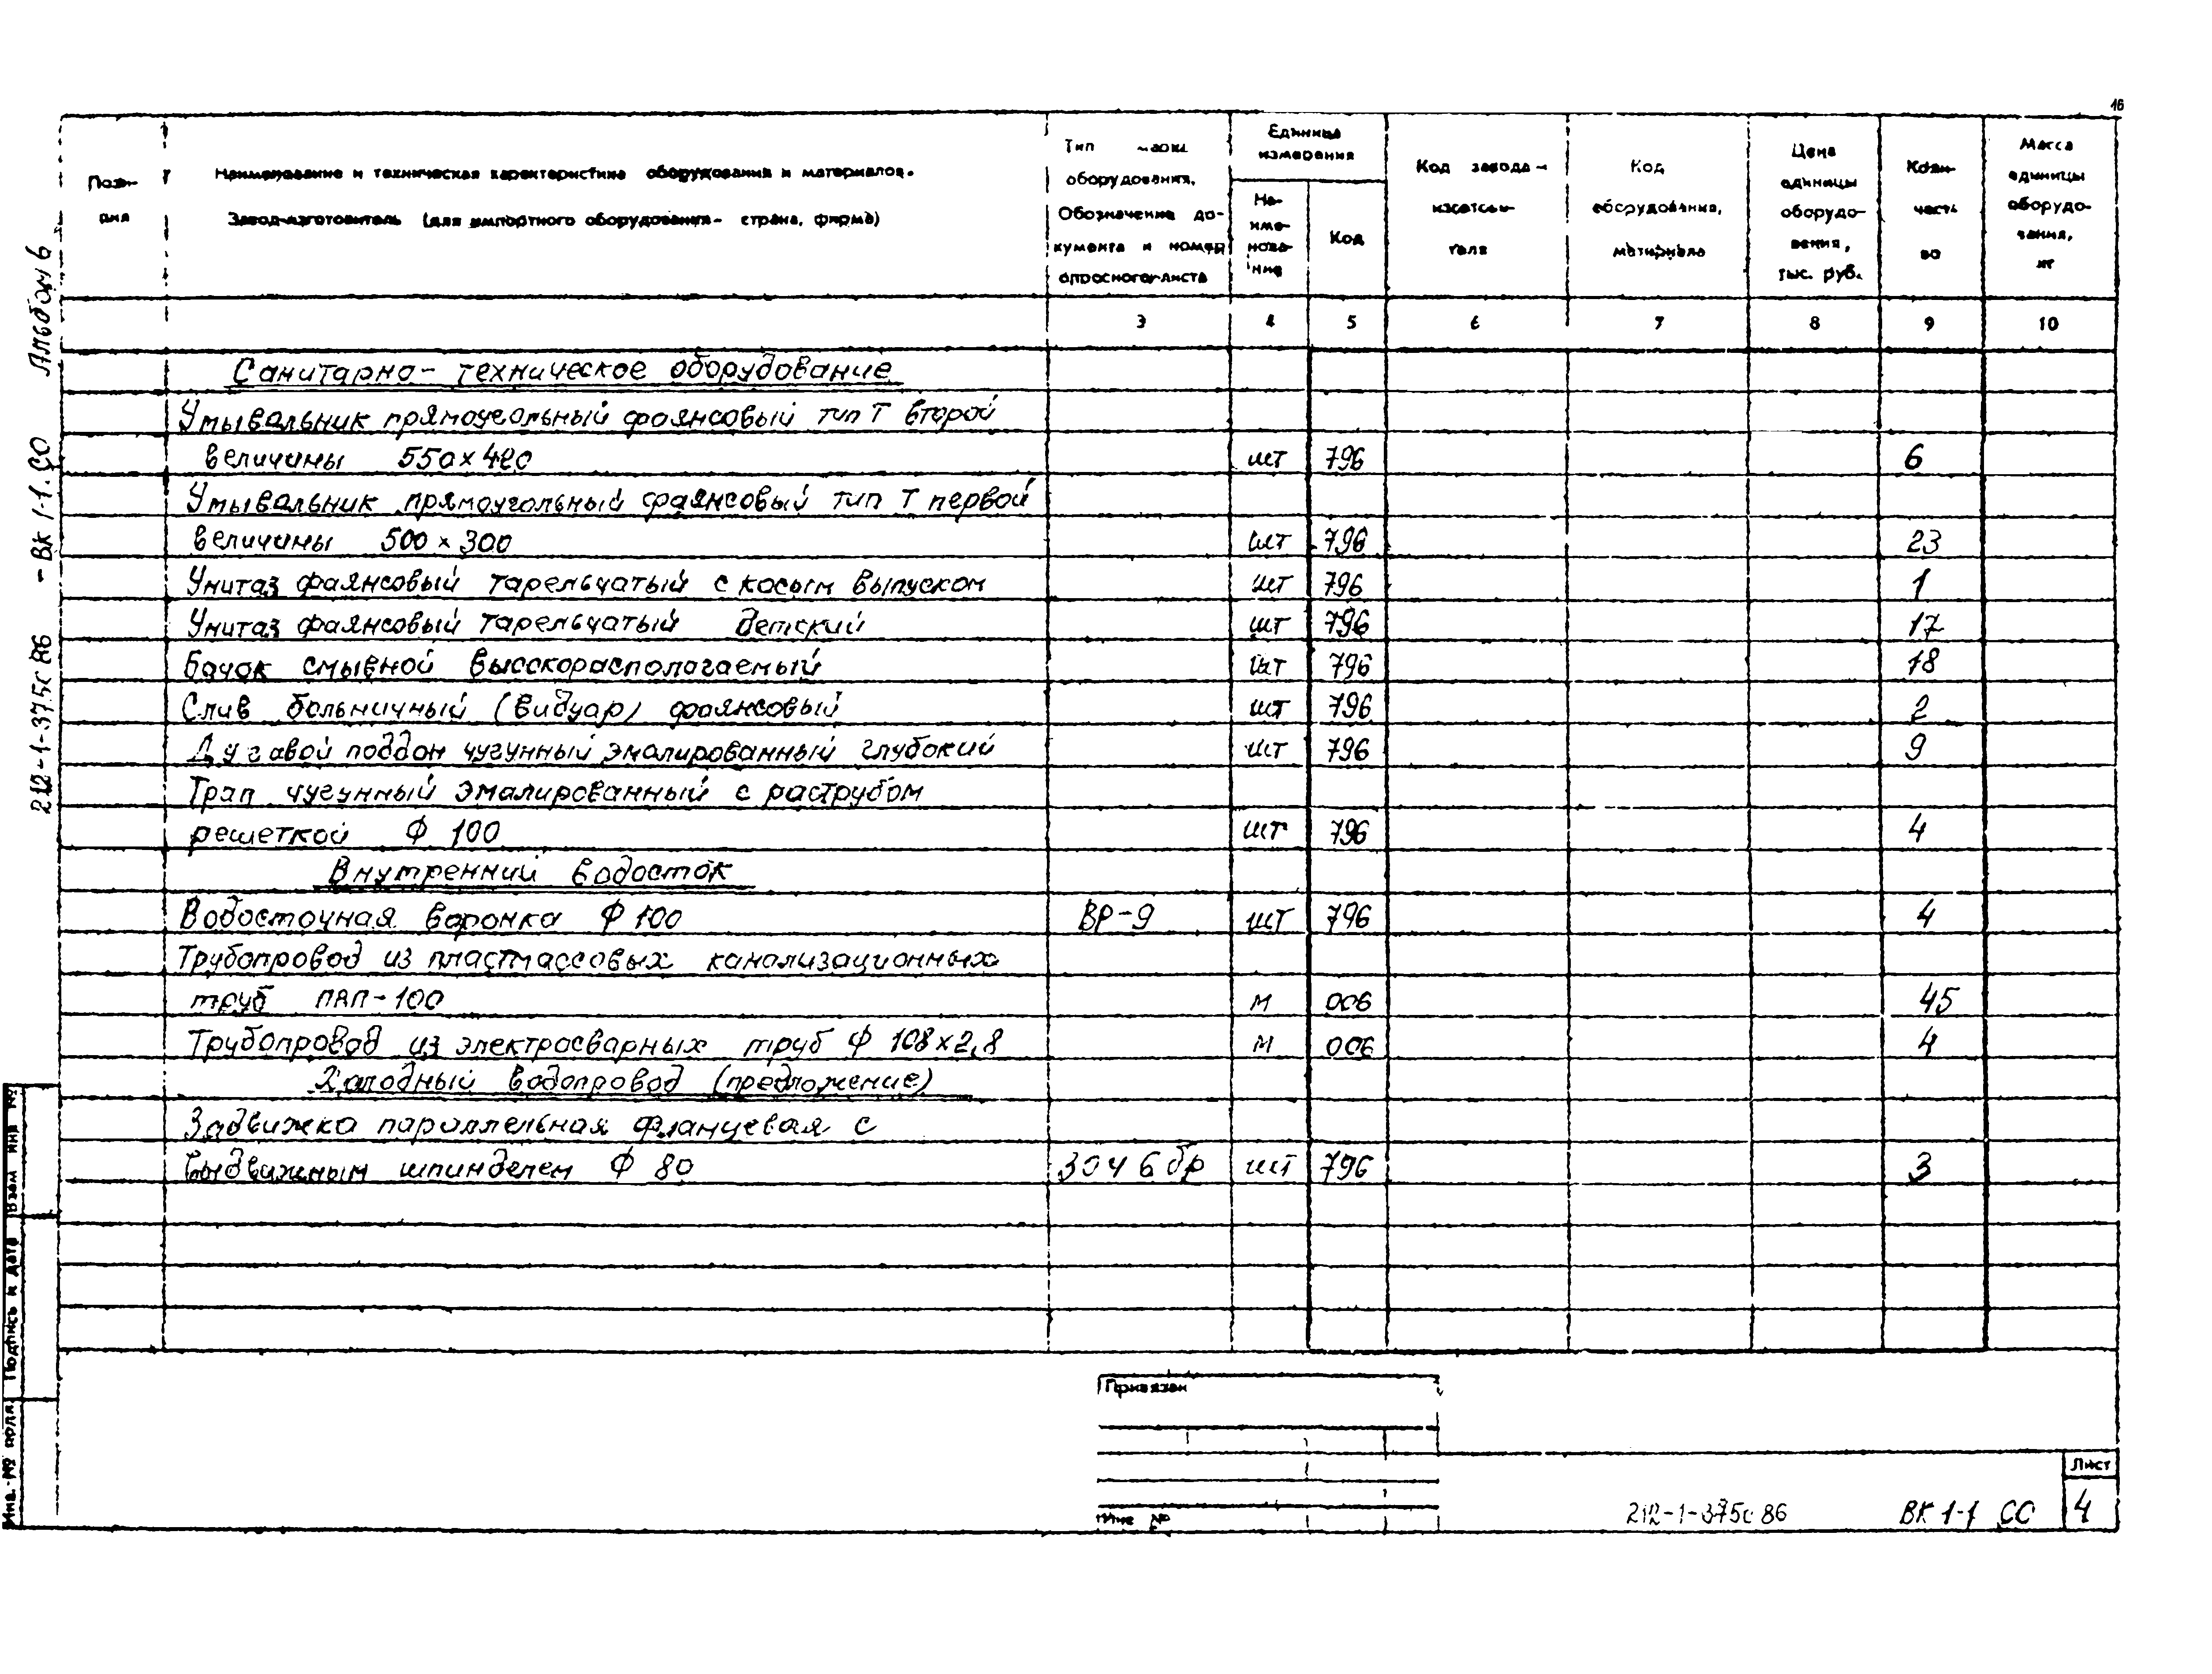 16
Пози-
ция
Наименование и техническая характеристика оборудования и материалов.
Завод-изготовитель (для импортного оборудования- страна, фирма)
Тип марка
оборудования,
Обозначение до-
кумента и номер
опросного листа
Единица
измерения
На-
име-
нова-
ние
Код
Код завода-
изготови-
теля
Код
оборудования,
материала
Цена
единицы
оборудо-
вания,
тыс. руб.
Коли-
чест-
во
Масса
единицы
оборудо-
вания,
кг
3 4 5 6 7 8 9 10
Санитарно-техническое оборудование
Умывальник прямоугольный фаянсовый тип Т второй
величины 550×420 шт 796 6
Умывальник прямоугольный фаянсовый тип Т первой
величины 500×300 шт 796 23
Унитаз фаянсовый тарельчатый с косым выпуском шт 796 1
Унитаз фаянсовый тарельчатый детский шт 796 17
Бачок смывной высокорасполагаемый шт 796 18
Слив больничный (видуар) фаянсовый шт 796 2
Душевой поддон чугунный эмалированный глубокий шт 796 9
Трап чугунный эмалированный с раструбом
решеткой Ф 100 шт 796 4
Внутренний водосток
Водосточная воронка Ф 100 ВР-9 шт 796 4
Трубопровод из пластмассовых канализационных
труб ПВП-100 м 006 45
Трубопровод из электросварных труб Ф 108×2,8 м 006 4
Холодный водопровод (предложение)
Задвижка параллельная фланцевая с
выдвижным шпинделем Ф 80 30ч 6 бр шт 796 3
Привязан
Инв №
212-1-375с 86 ВК 1-1 СО
Лист
4
Альбом 6
212-1-375с 86 -ВК 1-1.СО
Инв. № подл. Подпись и дата Взам инв №